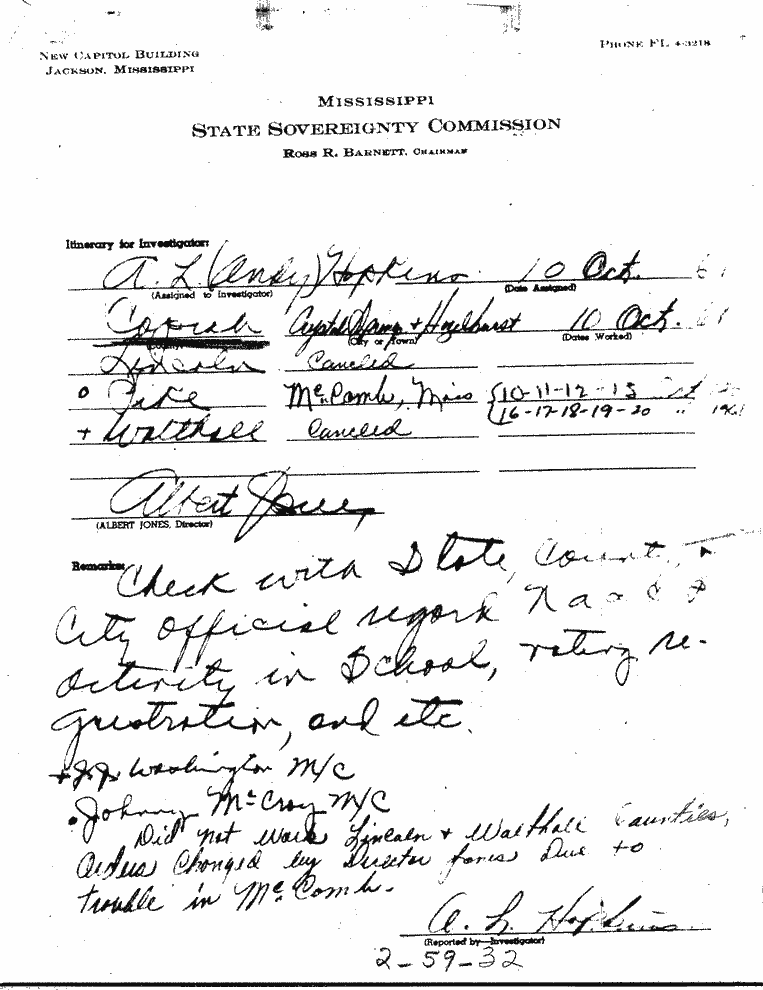 NEW CAPITOL BUILDING
JACKSON, MISSISSIPPI
PHONE FL 4-3218
MISSISSIPPI
STATE SOVEREIGNTY COMMISSION
ROSS R. BARNETT, CHAIRMAN
Itinerary for Investigator:
A. L. (Andy) Hopkins 10 Oct. 61
(Assigned to Investigator) (Date Assigned)
Copiah Crystal Springs + Hazelhurst 10 Oct. 61
(City or Town) (Dates Worked)
Lincoln Canceled
o Pike Mc.Comb, Miss (10-11-12-13 Oct
+ Walthall Canceled (16-17-18-19-20 " 1961
Albert Jones
(ALBERT JONES, Director)
Remarks: Check with State, County, +
City official regard N a a c P
activity in School, voting re-
gristration, and etc.
+ Washington M/C
• Johnny McCroy M/C
Did not work Lincoln + Walthall Counties,
Orders Changed by Director Jones Due to
trouble in McComb.
A. L. Hopkins
(Reported by Investigator)
2-59-32